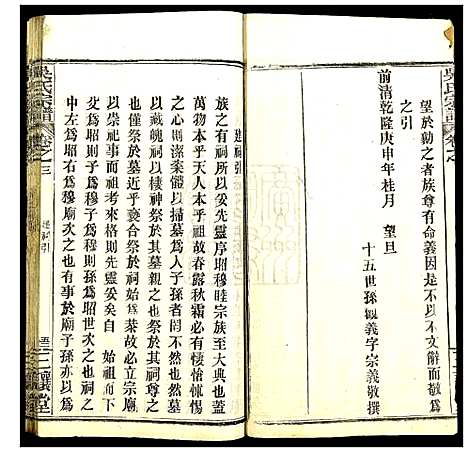 吳氏宗譜
卷之
望於勒之者族尊有命義因是不以不文辭而敬爲
之引
前清乾隆庚申年桂月　望旦
十五世孫觀義字宗義敬撰
建祠引
族之有祠所以妥先靈序昭穆睦宗族至大典也蓋
萬物本乎天人本乎祖故春露秋霜必有悽愴怵惕
之心則潔粢盛以掃墓爲人子孫者罔不然也然墓
以藏魄祠以棲神祭於其墓親之也祭於其祠尊之
也僅祭於墓近乎褻合祭於祠始無菜故必立宗廟
以崇祀事而祖考來格則先靈妥矣自　始祖而下
父爲昭則子爲穆子爲穆則孫爲昭世次之也祠之
中左爲昭右爲穆廟次之也有事於廟子孫亦以爲
吳氏宗譜
卷之三
建祠引